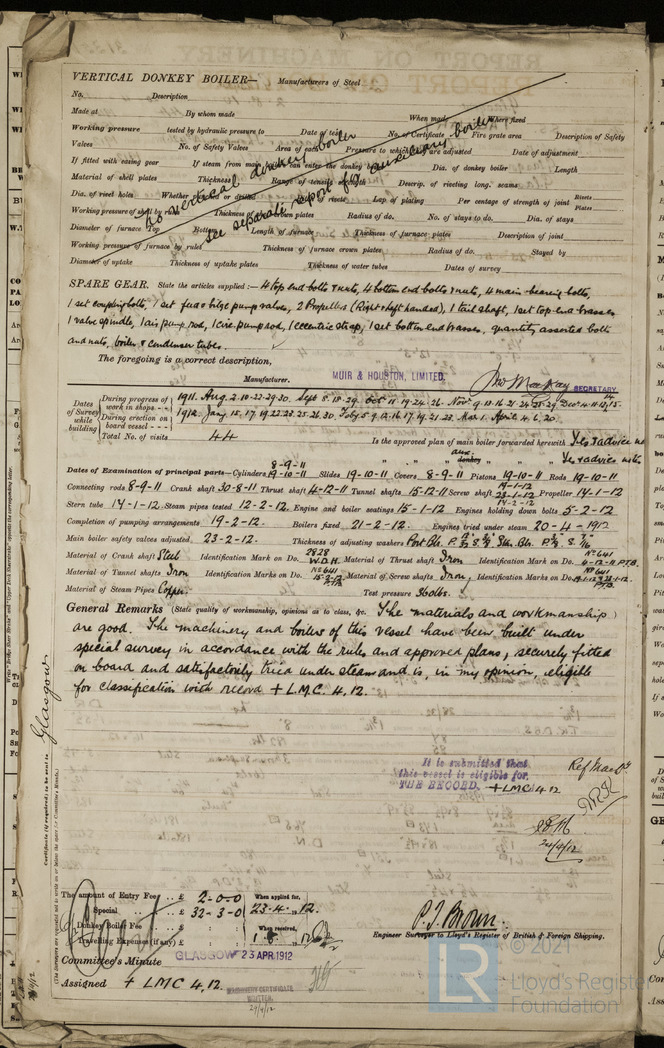 VERTICAL DONKEY BOILER— Manufacturers of Steel
No. Description
Made at By whom made When made Where fixed
Working pressure tested by hydraulic pressure to Date of test No. of Certificate Fire grate area Description of Safety
Valves No. of Safety Valves Area of each Pressure to which they are adjusted Date of adjustment
If fitted with easing gear If steam from main boilers can enter the donkey boiler Dia. of donkey boiler Length
Material of shell plates Thickness Range of tensile strength Descrip. of riveting long. seams
Dia. of rivet holes Whether punched or drilled Pitch of rivets Lap of plating Per centage of strength of joint Rivets Plates
Working pressure of shell by rules Thickness of crown plates Radius of do. No. of stays to do. Dia. of stays
Diameter of furnace Top Bottom Length of furnace Thickness of furnace plates Description of joint
Working pressure of furnace by rules Thickness of furnace crown plates Radius of do. Stayed by
Diameter of uptake Thickness of uptake plates Thickness of water tubes Dates of survey
No vertical donkey boiler
see separate report for auxiliary boiler
SPARE GEAR. State the articles supplied:— 4 top end bolts & nuts, 4 bottom end bolts & nuts, 4 main bearing bolts,
1 set coupling bolts, 1 set feed & bilge pump valves, 2 Propellers (Right & left handed), 1 tail shaft, 1 set top end brasses
1 valve spindle, 1 air pump rod, 1 circ. pump rod, 1 eccentric strap, 1 set bottom end brasses, quantity assorted bolts
and nuts, boiler & condenser tubes.
The foregoing is a correct description,
Manufacturer. MUIR & HOUSTON, LIMITED. Jno MacKay SECRETARY
Dates of Survey while building
During progress of work in shops - - 1911. Aug. 2. 10. 22. 29. 30. Sept 8. 18. 29. Oct 11. 19. 24. 26. Nov. 9. 13. 16. 21. 24. 25. 29. Dec 4. 11. 12. 15.
During erection on board vessel - - - 1912. Jany 15. 17. 19. 22. 23. 25. 26. 30. Feby 5. 9. 12. 16. 17. 19. 21. 23. Mar 1. April 4. 6. 20.
Total No. of visits 44
Is the approved plan of main boiler forwarded herewith Yes & advice note
" " " aux. donkey " " " Yes & advice note
Dates of Examination of principal parts—Cylinders 8-9-11 19-10-11 Slides 19-10-11 Covers 8-9-11 Pistons 19-10-11 Rods 19-10-11
Connecting rods 8-9-11 Crank shaft 30-8-11 Thrust shaft 4-12-11 Tunnel shafts 15-12-11 Screw shaft Propeller 14-1-12
Stern tube 14-1-12 Steam pipes tested 12-2-12. Engine and boiler seatings 15-1-12 Engines holding down bolts 5-2-12
Completion of pumping arrangements 19-2-12. Boilers fixed 21-2-12. Engines tried under steam 20-4-1912
Main boiler safety valves adjusted 23-2-12. Thickness of adjusting washers
Material of Crank shaft Steel Identification Mark on Do. 2828 W.D.H. Material of Thrust shaft Iron Identification Mark on Do. No 641 4-12-11 P.T.B.
Material of Tunnel shafts Iron Identification Marks on Do. No 641 15-12-11 P.T.B. Material of Screw shafts Iron Identification Marks on Do. No 641
Material of Steam Pipes Copper. Test pressure 360 lbs.
General Remarks (State quality of workmanship, opinions as to class, &c. The materials and workmanship
are good. The machinery and boilers of this vessel have been built under
special survey in accordance with the rules and approved plans, securely fitted
on board and satisfactorily tried under steam and is, in my opinion, eligible
for classification with record + L.M.C. 4.12.
Certificate (if required) to be sent to Glasgow
It is submitted that
this vessel is eligible for
THE RECORD. + LMC 4.12
24/4/12
The amount of Entry Fee . . £ 2-0-0 When applied for,
Special . . £ 32-3-0 23-4-12.
Donkey Boiler Fee . . £ : : When received,
Travelling Expenses (if any) £ : :
P. T. Brown.
Engineer Surveyor to Lloyd's Register of British & Foreign Shipping.
Committee's Minute GLASGOW 23 APR 1912
Assigned + LMC 4.12.
MACHINERY CERTIFICATE
WRITTEN.
© 2021
LR
Lloyd's Register
Foundation